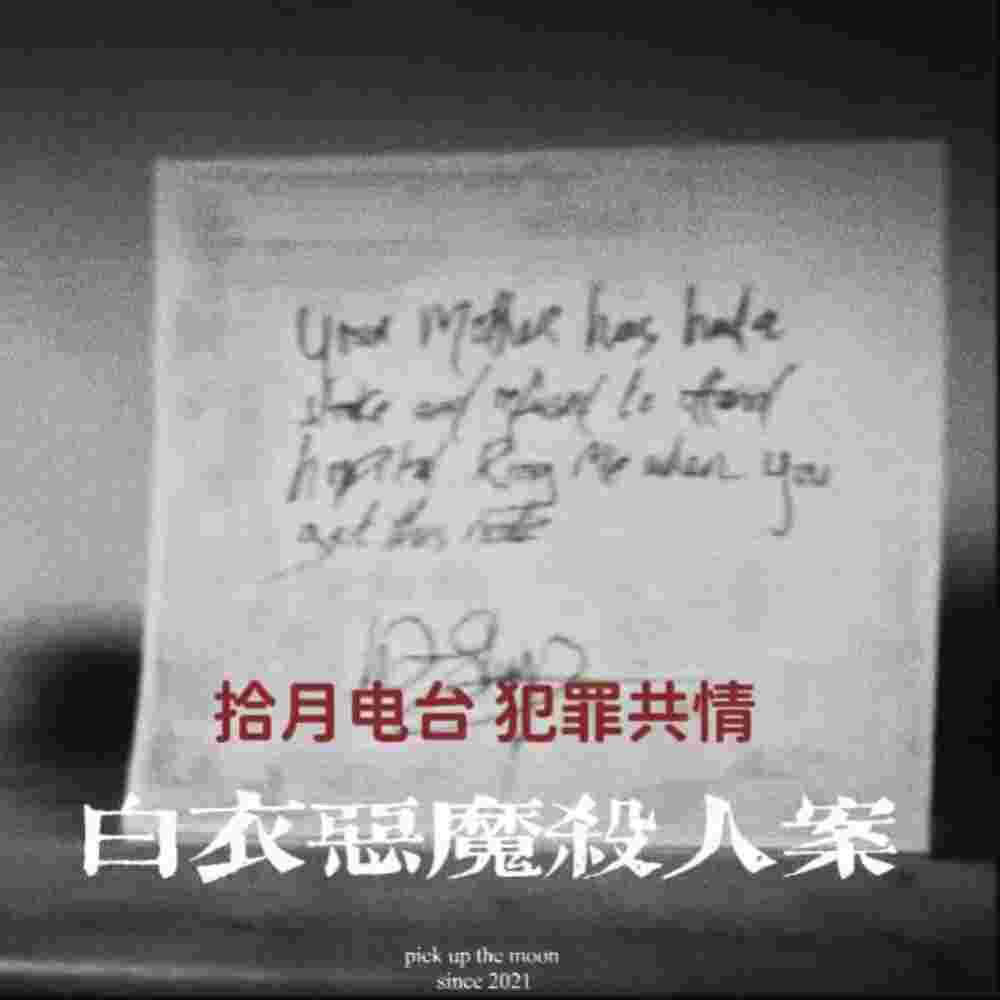 Your Mother has had a
stroke and refused to attend
hospital Ring Me when you
get this note
拾月电台 犯罪共情
白衣惡魔殺人案
pick up the moon
since 2021